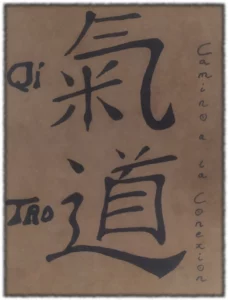 Qi
氣
TAO
道
Camino a la Conexion